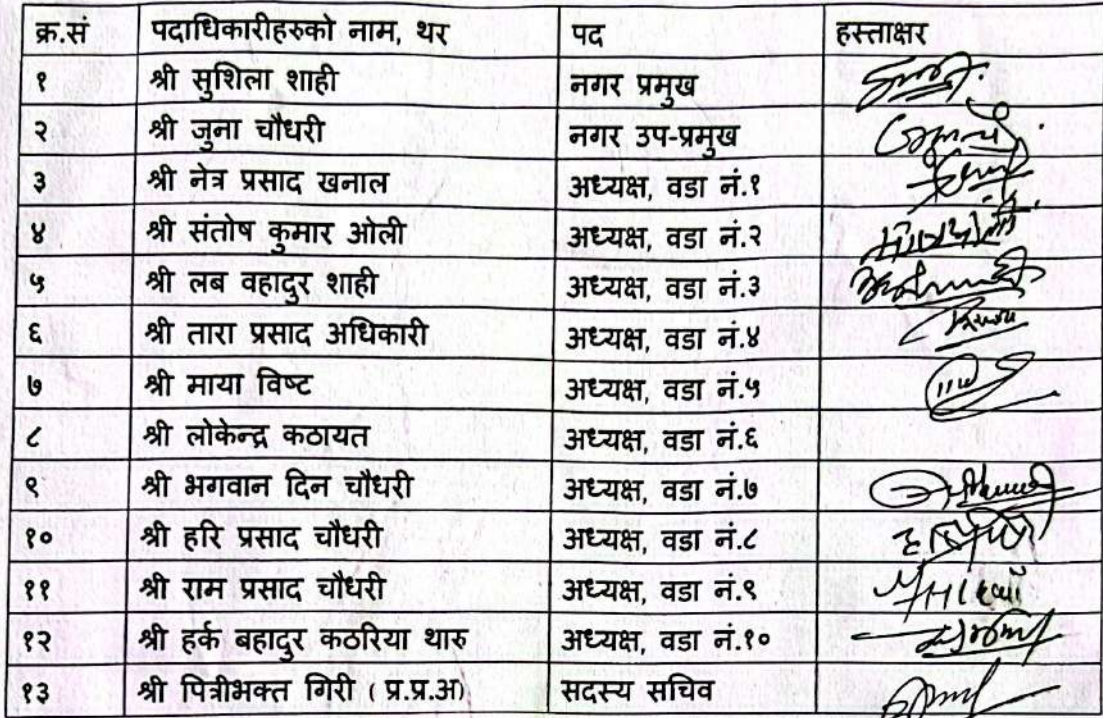 क्र.सं पदाधिकारीहरुको नाम, थर पद हस्ताक्षर
१ श्री सुशिला शाही नगर प्रमुख
२ श्री जुना चौधरी नगर उप-प्रमुख
३ श्री नेत्र प्रसाद खनाल अध्यक्ष, वडा नं.१
४ श्री संतोष कुमार ओली अध्यक्ष, वडा नं.२
५ श्री लब वहादुर शाही अध्यक्ष, वडा नं.३
६ श्री तारा प्रसाद अधिकारी अध्यक्ष, वडा नं.४
७ श्री माया विष्ट अध्यक्ष, वडा नं.५
८ श्री लोकेन्द्र कठायत अध्यक्ष, वडा नं.६
९ श्री भगवान दिन चौधरी अध्यक्ष, वडा नं.७
१० श्री हरि प्रसाद चौधरी अध्यक्ष, वडा नं.८
११ श्री राम प्रसाद चौधरी अध्यक्ष, वडा नं.९
१२ श्री हर्क बहादुर कठरिया थारु अध्यक्ष, वडा नं.१०
१३ श्री पित्रीभक्त गिरी ( प्र.प्र.अ) सदस्य सचिव